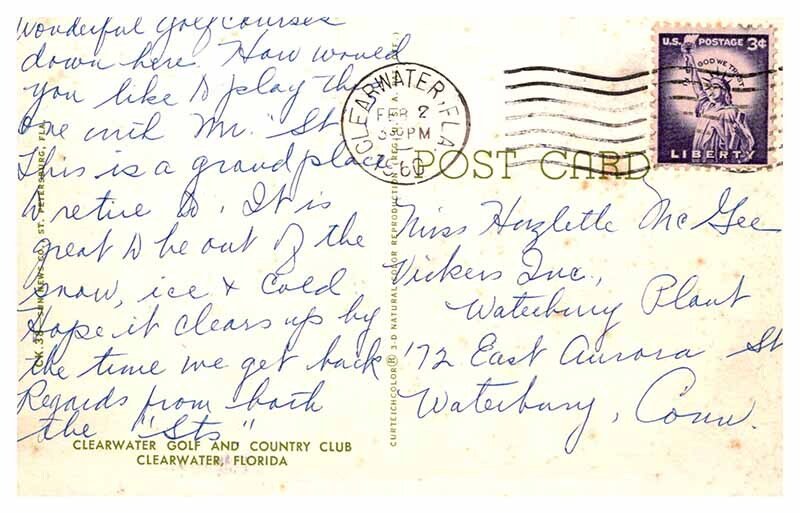 Wonderful golf courses
down here. How would
you like to play the
one with Mr. "St"
This is a grand place
to retire to. It is
great to be out of the
snow, ice & cold
Hope it clears up by
the time we get back
Regards from both
the "Sts"
CLEARWATER GOLF AND COUNTRY CLUB
CLEARWATER, FLORIDA
CK.38 SUN NEWS CO., ST. PETERSBURG, FLA.
CURTEICHCOLOR® 3-D NATURAL COLOR REPRODUCTION (REG. U.S.A.
POST CARD
CLEARWATER, FLA.
FEB 2
330PM
60
U.S. POSTAGE 3¢
IN GOD WE TRUST
LIBERTY
Miss Hazlette McGee
Vickers Inc.,
Waterbury Plant
172 East Aurora St
Waterbury, Conn.